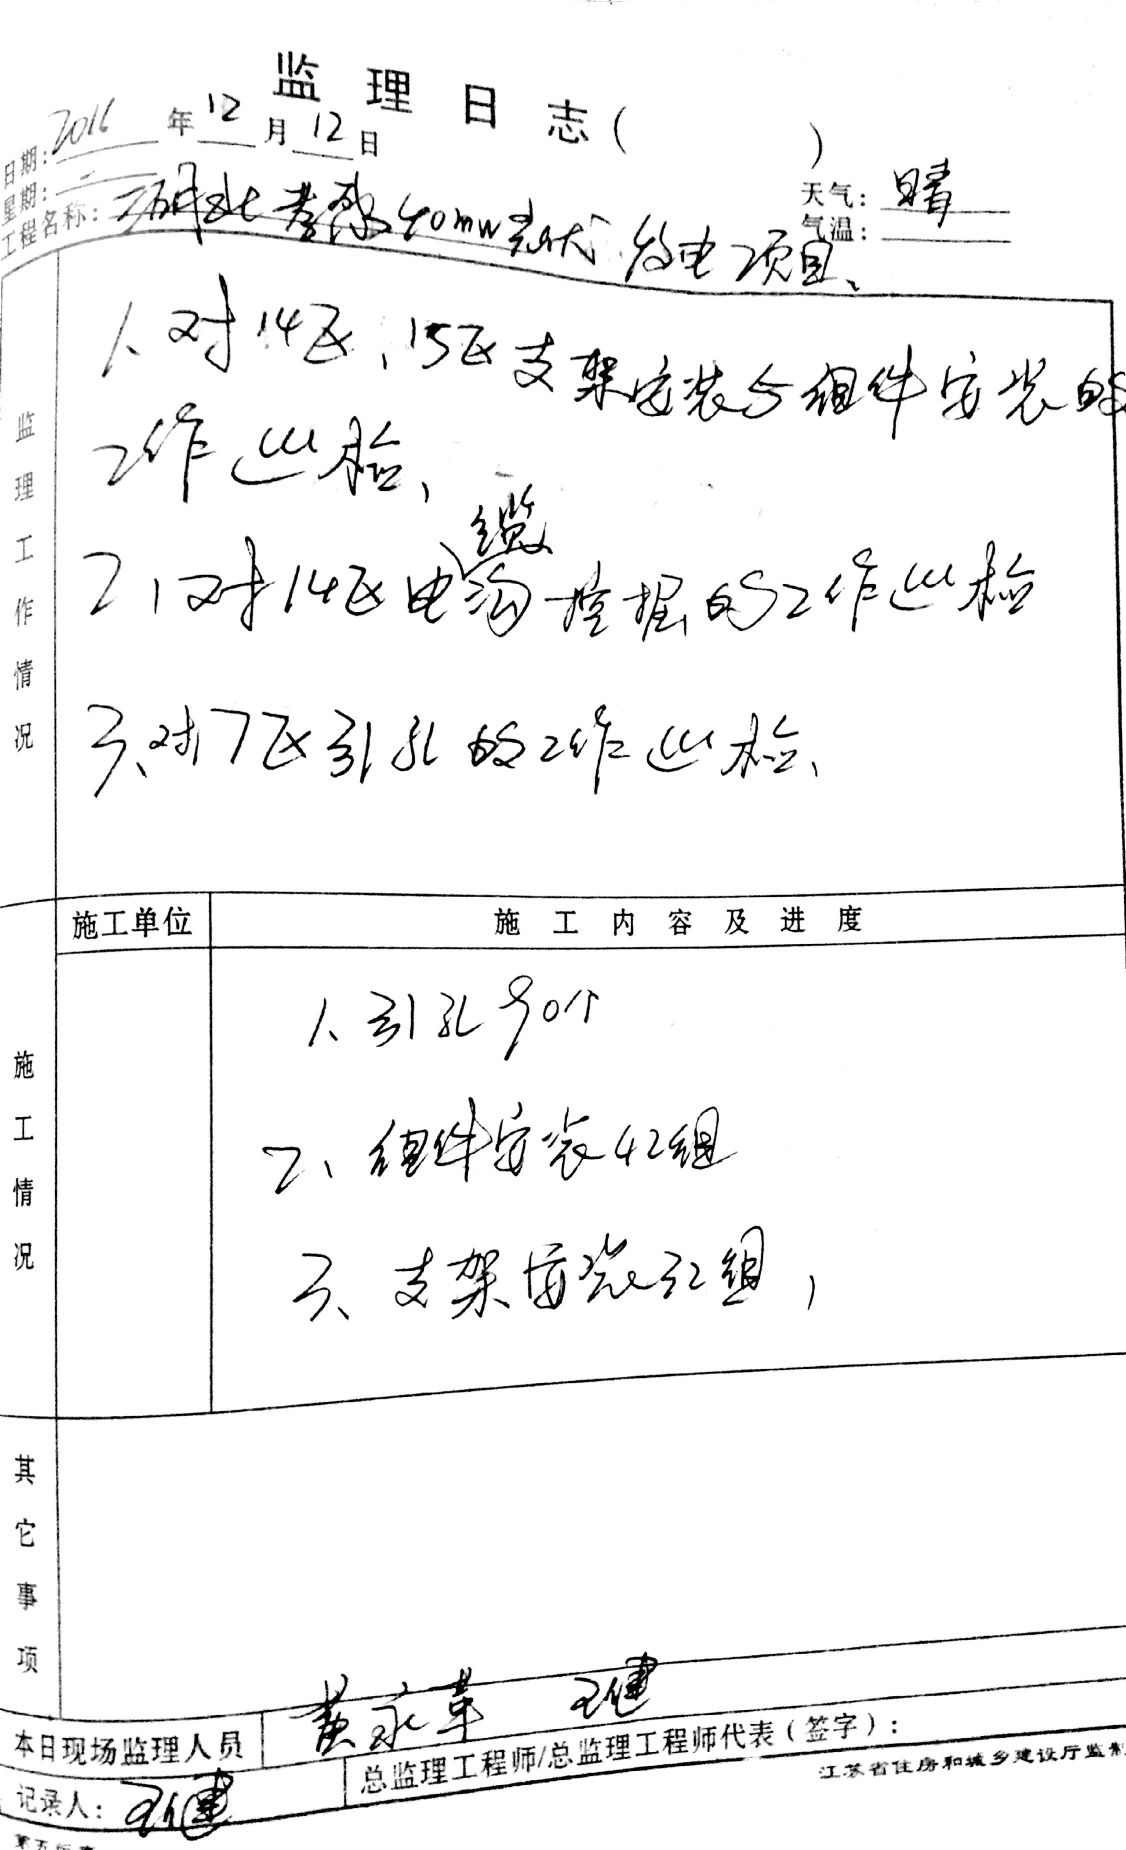 监理日志（ ）
日期：2016年12月12日
星期：一 天气：晴
工程名称：湖北孝感40mw光伏发电项目、 气温：
监理工作情况
1、对14区、15区支架安装与组件安装的
工作巡检、
2、对14区电缆沟挖掘的工作巡检
3、对7区引孔的工作巡检、
施工单位 施工内容及进度
施工情况
1、引孔90个
2、组件安装42组
3、支架安装32组，
其它事项
本日现场监理人员 黄永革 王健
总监理工程师/总监理工程师代表（签字）：
记录人：王健
江苏省住房和城乡建设厅监制